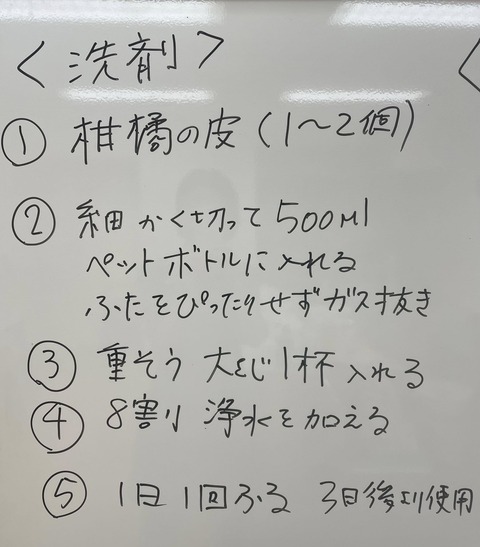 <洗剤>
① 柑橘の皮(1〜2個)
② 細かく切って500ml
ペットボトルに入れる
ふたをぴったりせずガス抜き
③ 重そう 大さじ1杯 入れる
④ 8割り 浄水を加える
⑤ 1日1回ふる 3日後より使用